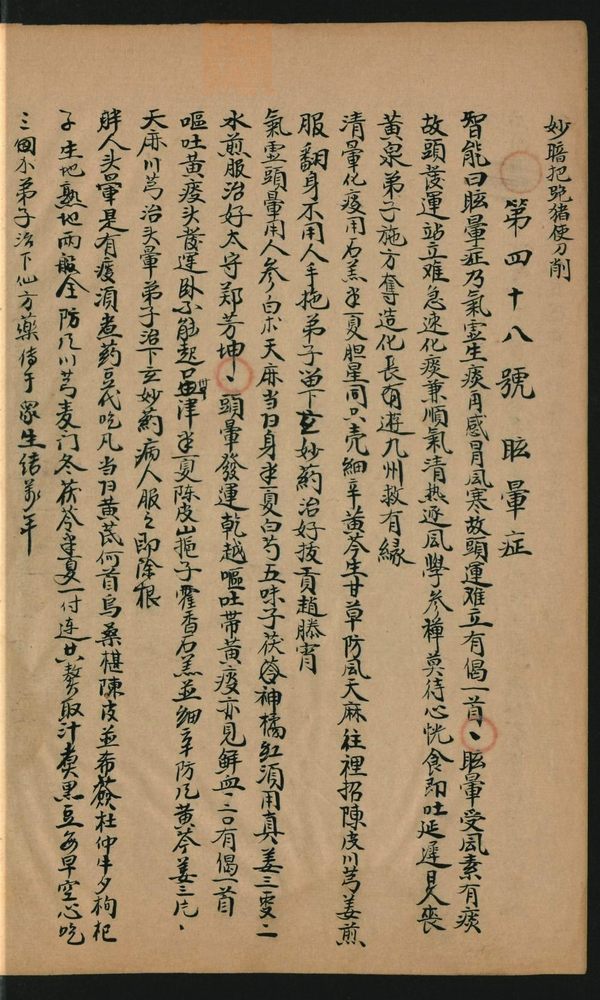 妙暗把跪猪使刀削
第四十八號 眩暈症
智能曰眩暈症乃氣虛生痰再感冒風寒故頭運难立有偈一首、眩暈受風素有痰
故頭發運站立难急速化痰兼順氣清热逐風學参禅莫待心恍食即吐延遲日久喪
黃泉弟子施方奪造化長有遊九州救有緣
清暈化痰用石羔半夏胆星同只壳細辛黃芩生甘草防風天麻往裡招陳皮川芎姜煎
服翻身不用人手拖弟子留下玄妙葯治好拔貢趙滕宵
氣虛頭暈用人参白朮天麻当归身半夏白芍五味子茯苓神橘紅須用真姜三枣二
水煎服治好太守郑芳坤、頭暈發運乾越嘔吐帶黃痰亦見鮮血二言有偈一首
嘔吐黃痰头發運卧不能起口津半夏陈皮山栀子霍香石羔並細辛防风黃芩姜三片、
天麻川芎治头暈弟子治下玄妙葯病人服之即除根
胖人头暈是有痰湏煮药豆代吃凡当归黃芪何首烏桑椹陳皮並赤杜仲牛夕枸杞
子生地熟地两般全防风川芎麦门冬茯苓半夏一付连廿熬取汁煑黑豆每早空心吃
三回小弟子治下仙方藥傳于眾生結萬年